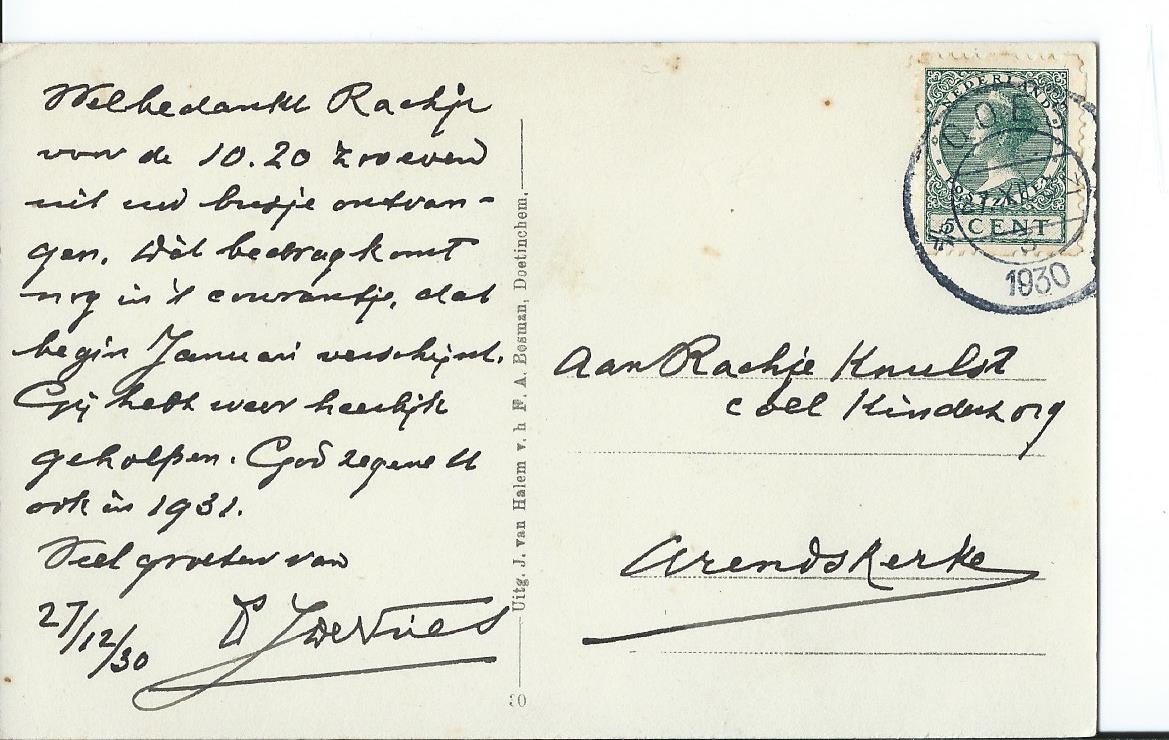 Welbedankt Raakje
voor de 10.20 zooeven
uit uw busje ontvan-
gen. Dit bedrag komt
nog in 't courantje, dat
begin Januari verschijnt.
Gij hebt weer heerlijk
geholpen. God zegene U
ook in 1931.
Veel groeten van
27/12/30
J de Vries
Uitg. J. van Halem v. h F. A. Besman, Doetinchem.
30
NEDERLAND
5 CENT
1930
Aan Raakje Knulst
coll Kinderzorg
Arendskerke